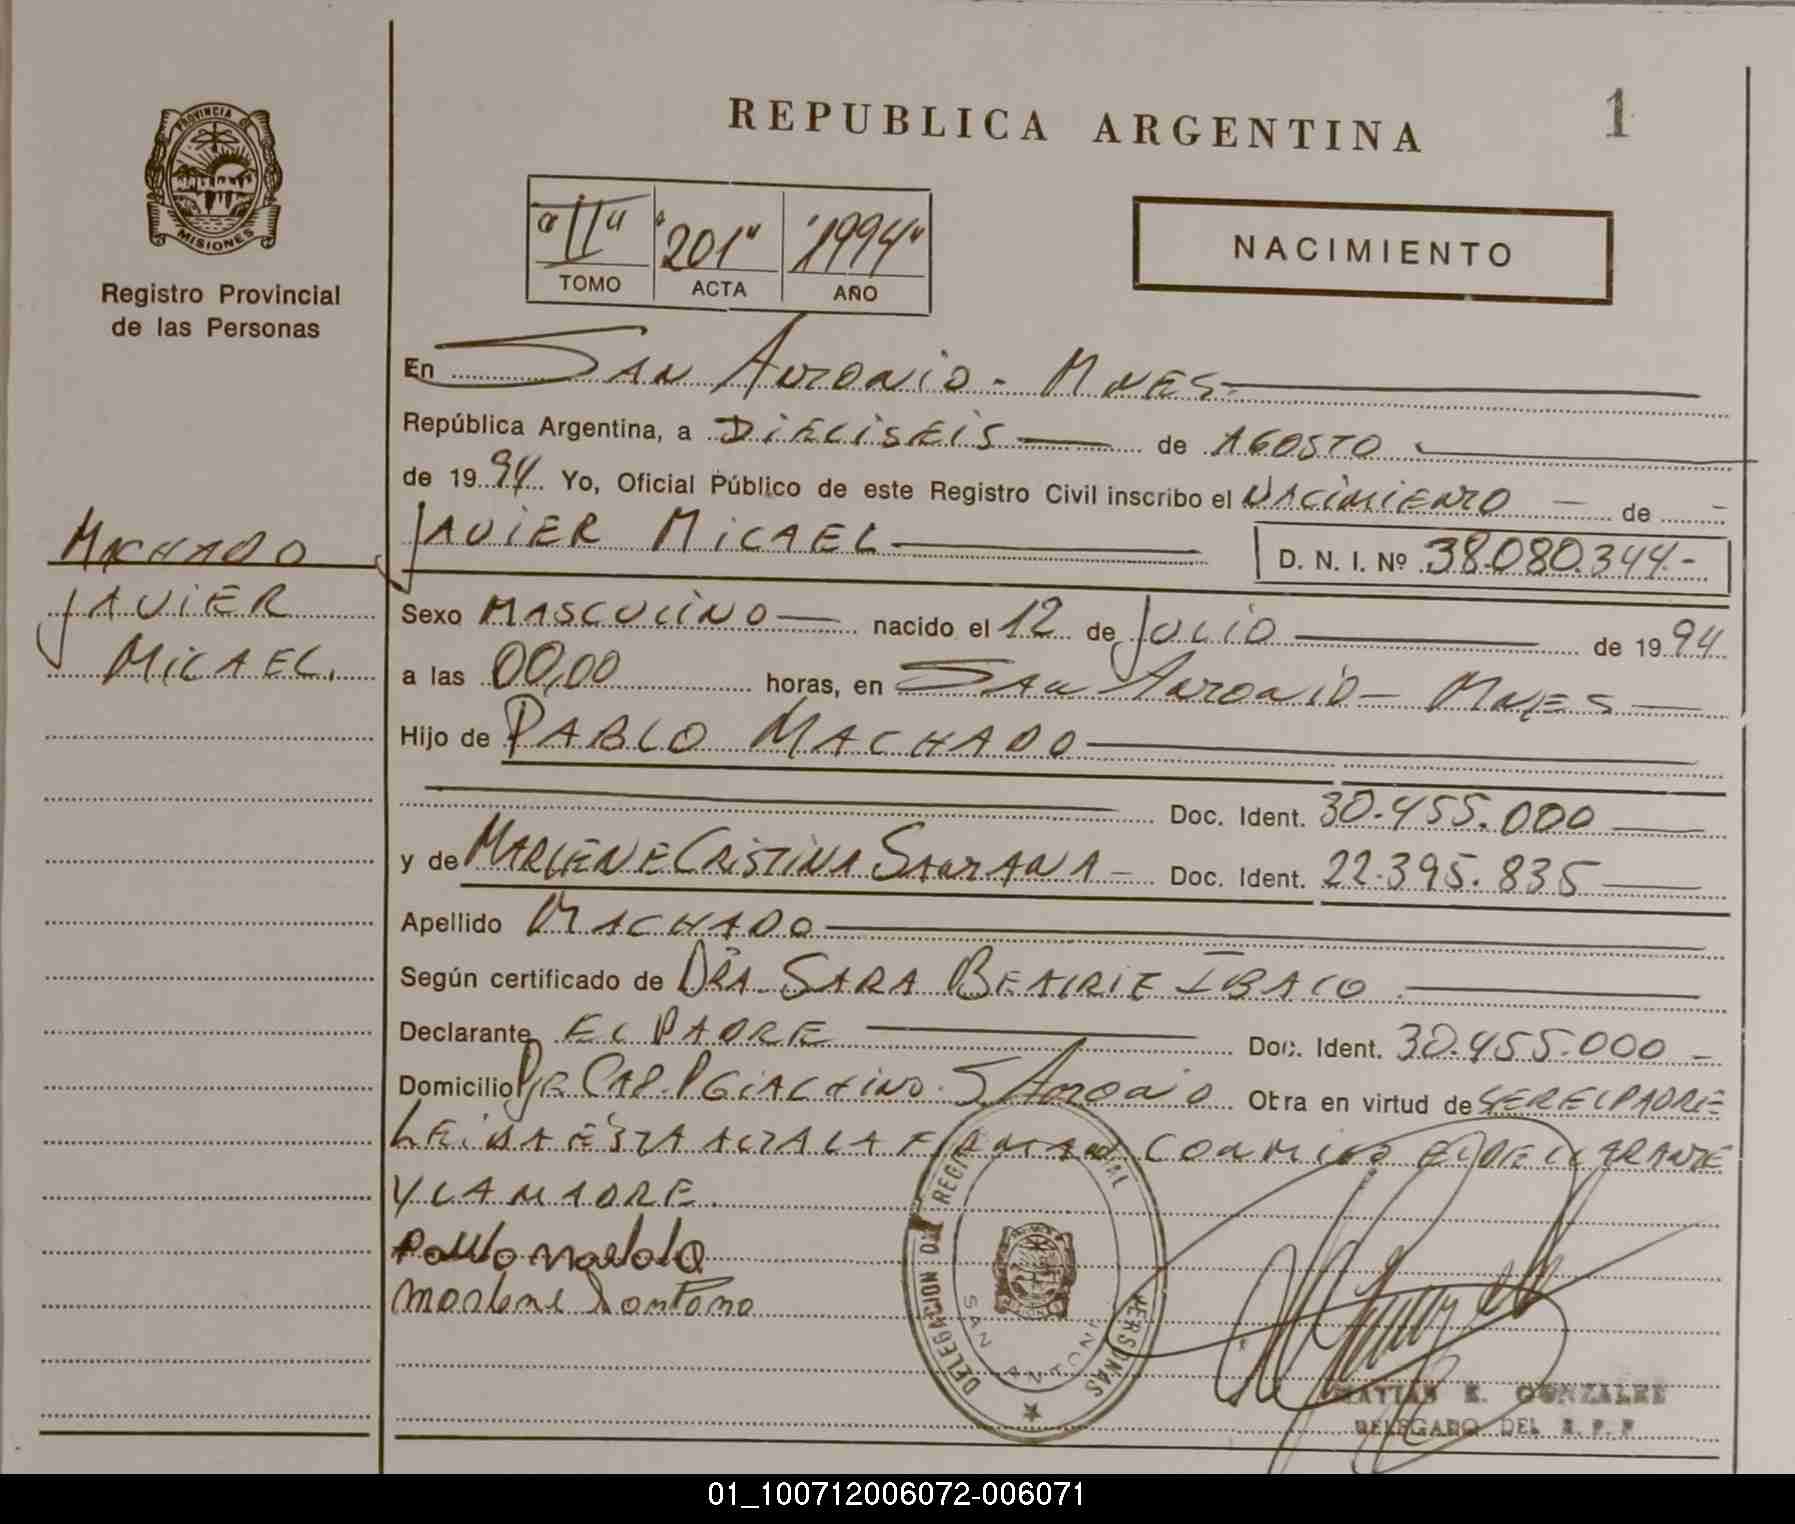 REPUBLICA ARGENTINA
1
PROVINCIA DE
MISIONES
Registro Provincial
de las Personas
"II" "201" "1994"
TOMO ACTA AÑO
NACIMIENTO
En SAN ANTONIO - MNES -
República Argentina, a DIECISEIS de AGOSTO
de 1994 Yo, Oficial Público de este Registro Civil inscribo el NACIMIENTO - de -
JAVIER MICAEL D. N. I. Nº 38.080.344.-
MACHADO
JAVIER
MICAEL.
Sexo MASCULINO nacido el 12 de JULIO de 1994
a las 00,00 horas, en SAN ANTONIO - MNES
Hijo de PABLO MACHADO
Doc. Ident. 30.455.000
y de MARLENE CRISTINA SANTANA - Doc. Ident. 22.395.835
Apellido MACHADO
Según certificado de DRA. SARA BEATRIE IBACO
Declarante EL PADRE Doc. Ident. 30.455.000 -
Domicilio CAP. GIACHINO S. ANTONIO Obra en virtud de SER EL PADRE
LEIDA ESTA ACTA LA FIRMAN CONMIGO EL DECLARANTE
Y LA MADRE.
Pablo Machado
Marlene Santana
DELEGACION DEL REGISTRO PERSONAS
SAN ANTONIO
MATIAS E. GONZALEZ
DELEGADO DEL R. P. P
01_100712006072-006071